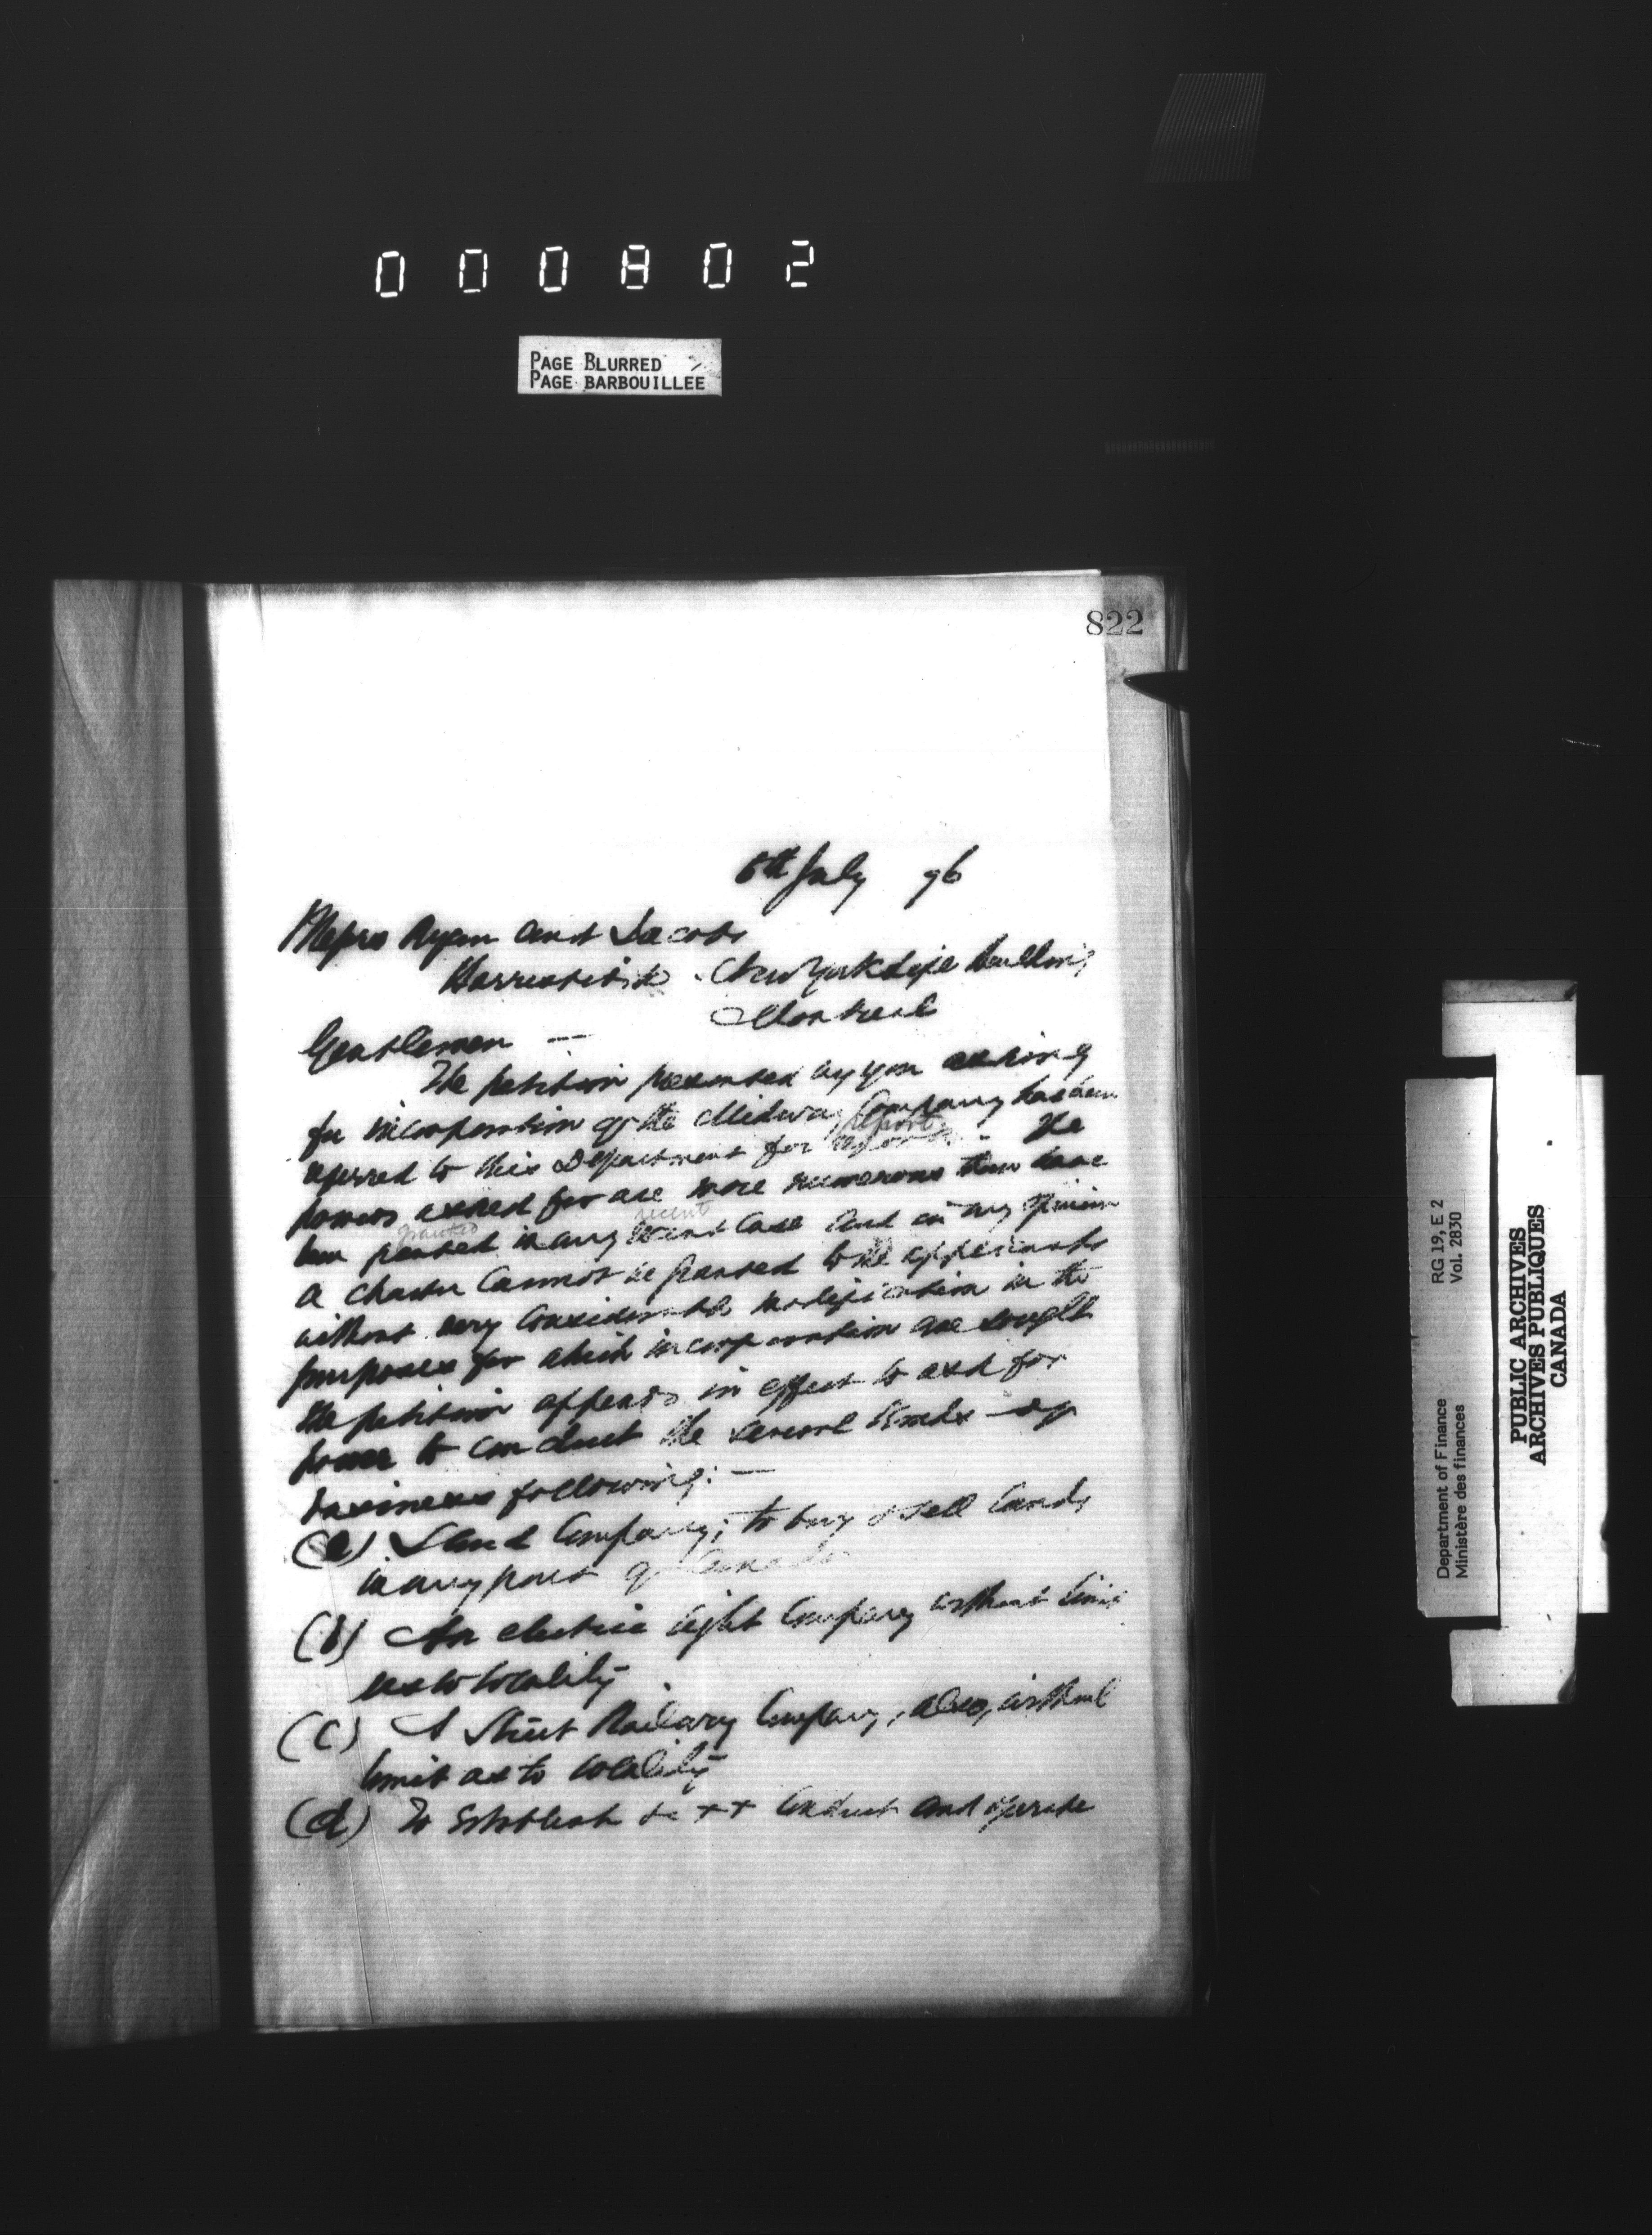 000802
PAGE BLURRED
PAGE BARBOUILLEE
822
6th July 96
Messrs Ryan and Jacobs
New York Life Building
Montreal
Gentlemen —
The petition presented by you asking
for incorporation of the Midway Company has been
report
referred to this Department for report. The
powers asked for are more numerous than have
granted recent
been granted in any recent case and in my opinion
a charter cannot be granted to the applicants
without very considerable modification in the
purposes for which incorporation are sought
the petition appears in effect to ask for
power to conduct the several kinds of
business following: —
(a) Land Company; to buy & sell lands
in any part of Canada
(b) An electric light Company without limit
as to locality
(c) A Street Railway Company, also, without
limit as to locality
(d) To Establish &c ++ Conduct and operate
Department of Finance RG 19, E 2
Ministère des finances Vol. 2830
PUBLIC ARCHIVES
ARCHIVES PUBLIQUES
CANADA